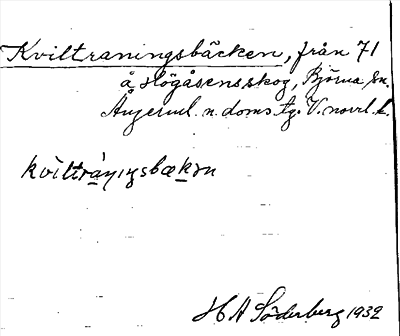 Kviltraningsbäcken, från 71
å Högåsensskog, Björna sn.
Ångerml. n. doms tg. V. norrl. l.
kvìltrányŋsbækən
H A Söderberg 1932